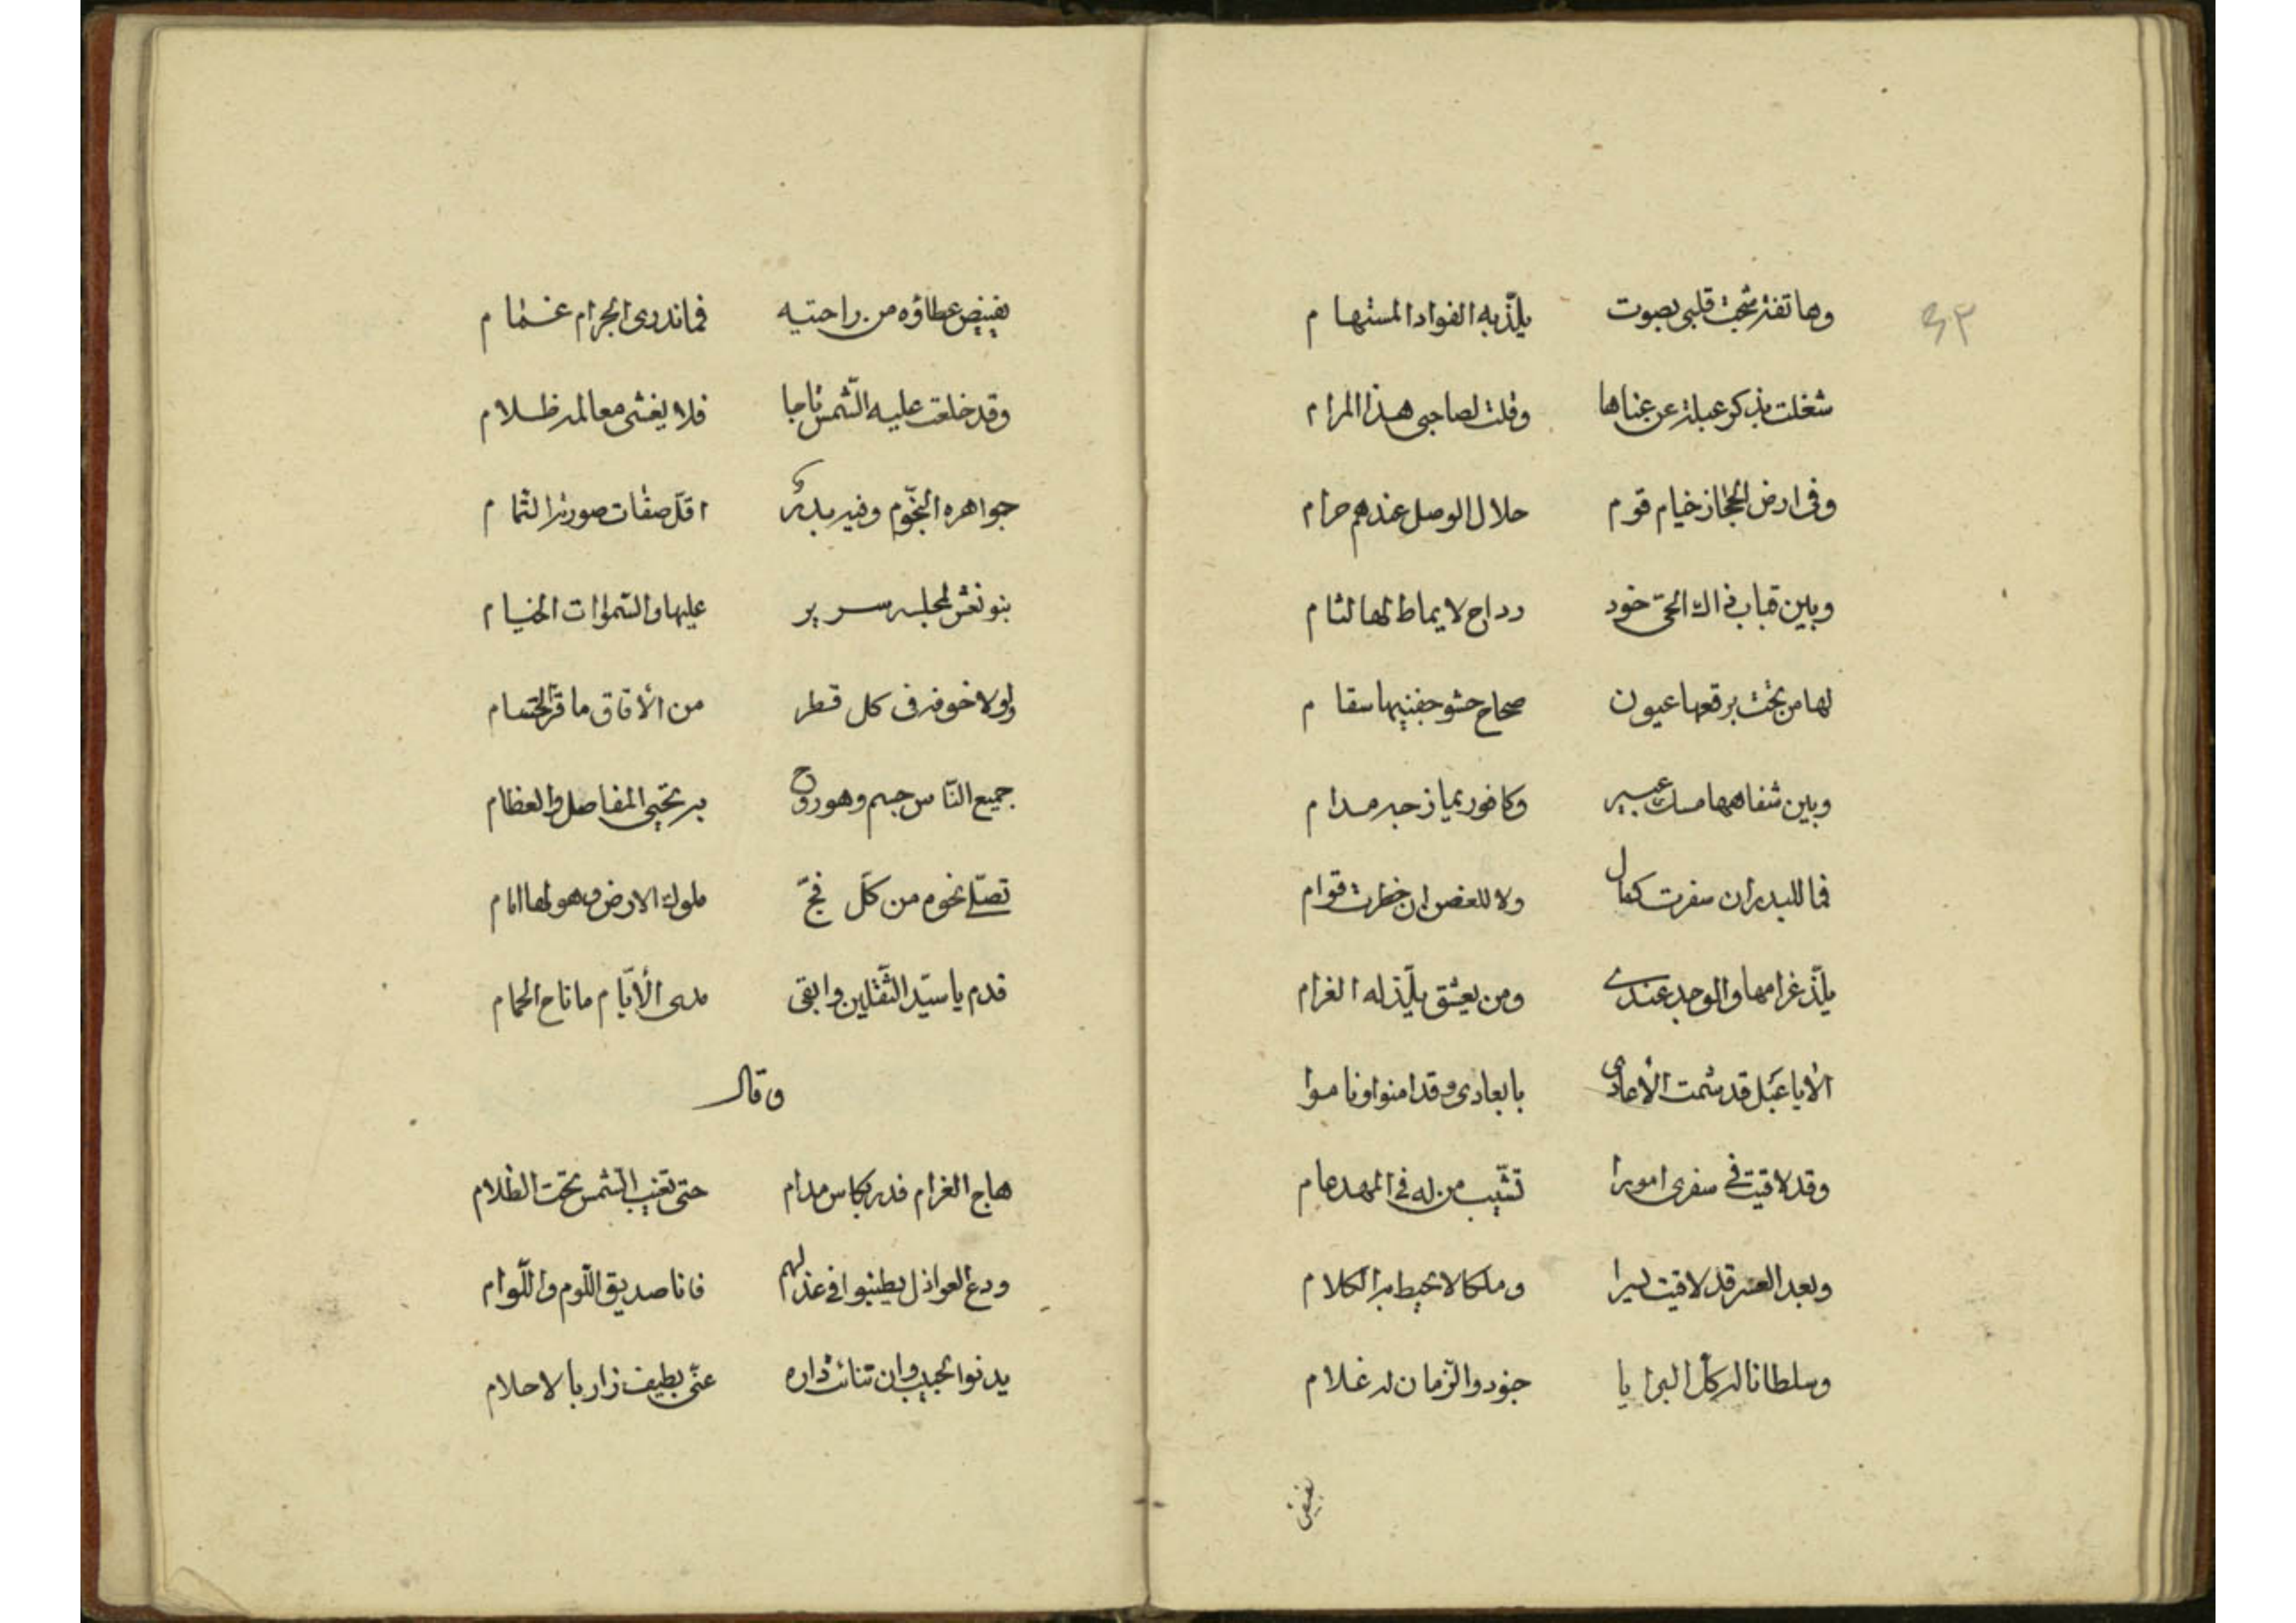 ٤٢
وهاتفة شجت قلبي بصوت يلذّ به الفواد المستهام
شغلت بذكر عبلة عن غناها وقلت لصاحبى هذا المرام
وفى ارض الحجاز خيام قوم حلال الوصل عندهم حرام
وبين قباب ذاك الحىّ خود رداح لا يماط لها لثام
لها من تحت برقعها عيون صحاح حشو جفنيها سقام
وبين شفاهها مسك عبير وكافور يمازجه مدام
فما للبدر ان سفرت كمال ولا للغصن ان خطرت قوام
يلذّ غرامها والوجد عندي ومن يعشق يلّذ له الغرام
الا يا عبل قد شمت الأعادى بابعادى وقد امنوا وناموا
وقد لاقيت فى سفرى امورا تشّيب من له فى المهد عام
وبعد العسر قد لاقيت يسرا وملكا لا يحيط به الكلام
وسلطانا له كلّ البرايا جنود والزّمان له غلام
يفيض
يفيض عطاؤه من راحتيه فما ندرى ابحر ام غمام
وقد خلعت عليه الشّمس تاجا فلا يغشى معالمه ظلام
جواهره النجّوم وفيه بدر اقلّ صفات صورته التمام
بنو نعش لمجلسه سرير عليها والسّموات الخيام
ولولا خوفه فى كل قطر من الأفاق ما قرّ الحسام
جميع النّاس جسم وهو روح به تحيى المفاصل والعظام
تصلّى نحوه من كلّ فجّ ملوك الارض وهو لها امام
فدم يا سيّد الثّقلين وابقى مدى الأيّام ما ناح الحمام
وقال
هاج الغرام فدر بكاس مدام حتى تغيب الشّمس تحت الظلام
ودع العواذل يطنبوا فى عذلهم فانا صديق اللّوم واللّوام
يدنوا الحبيب وان تنائت داره عنّى بطيف زار بالاحلام